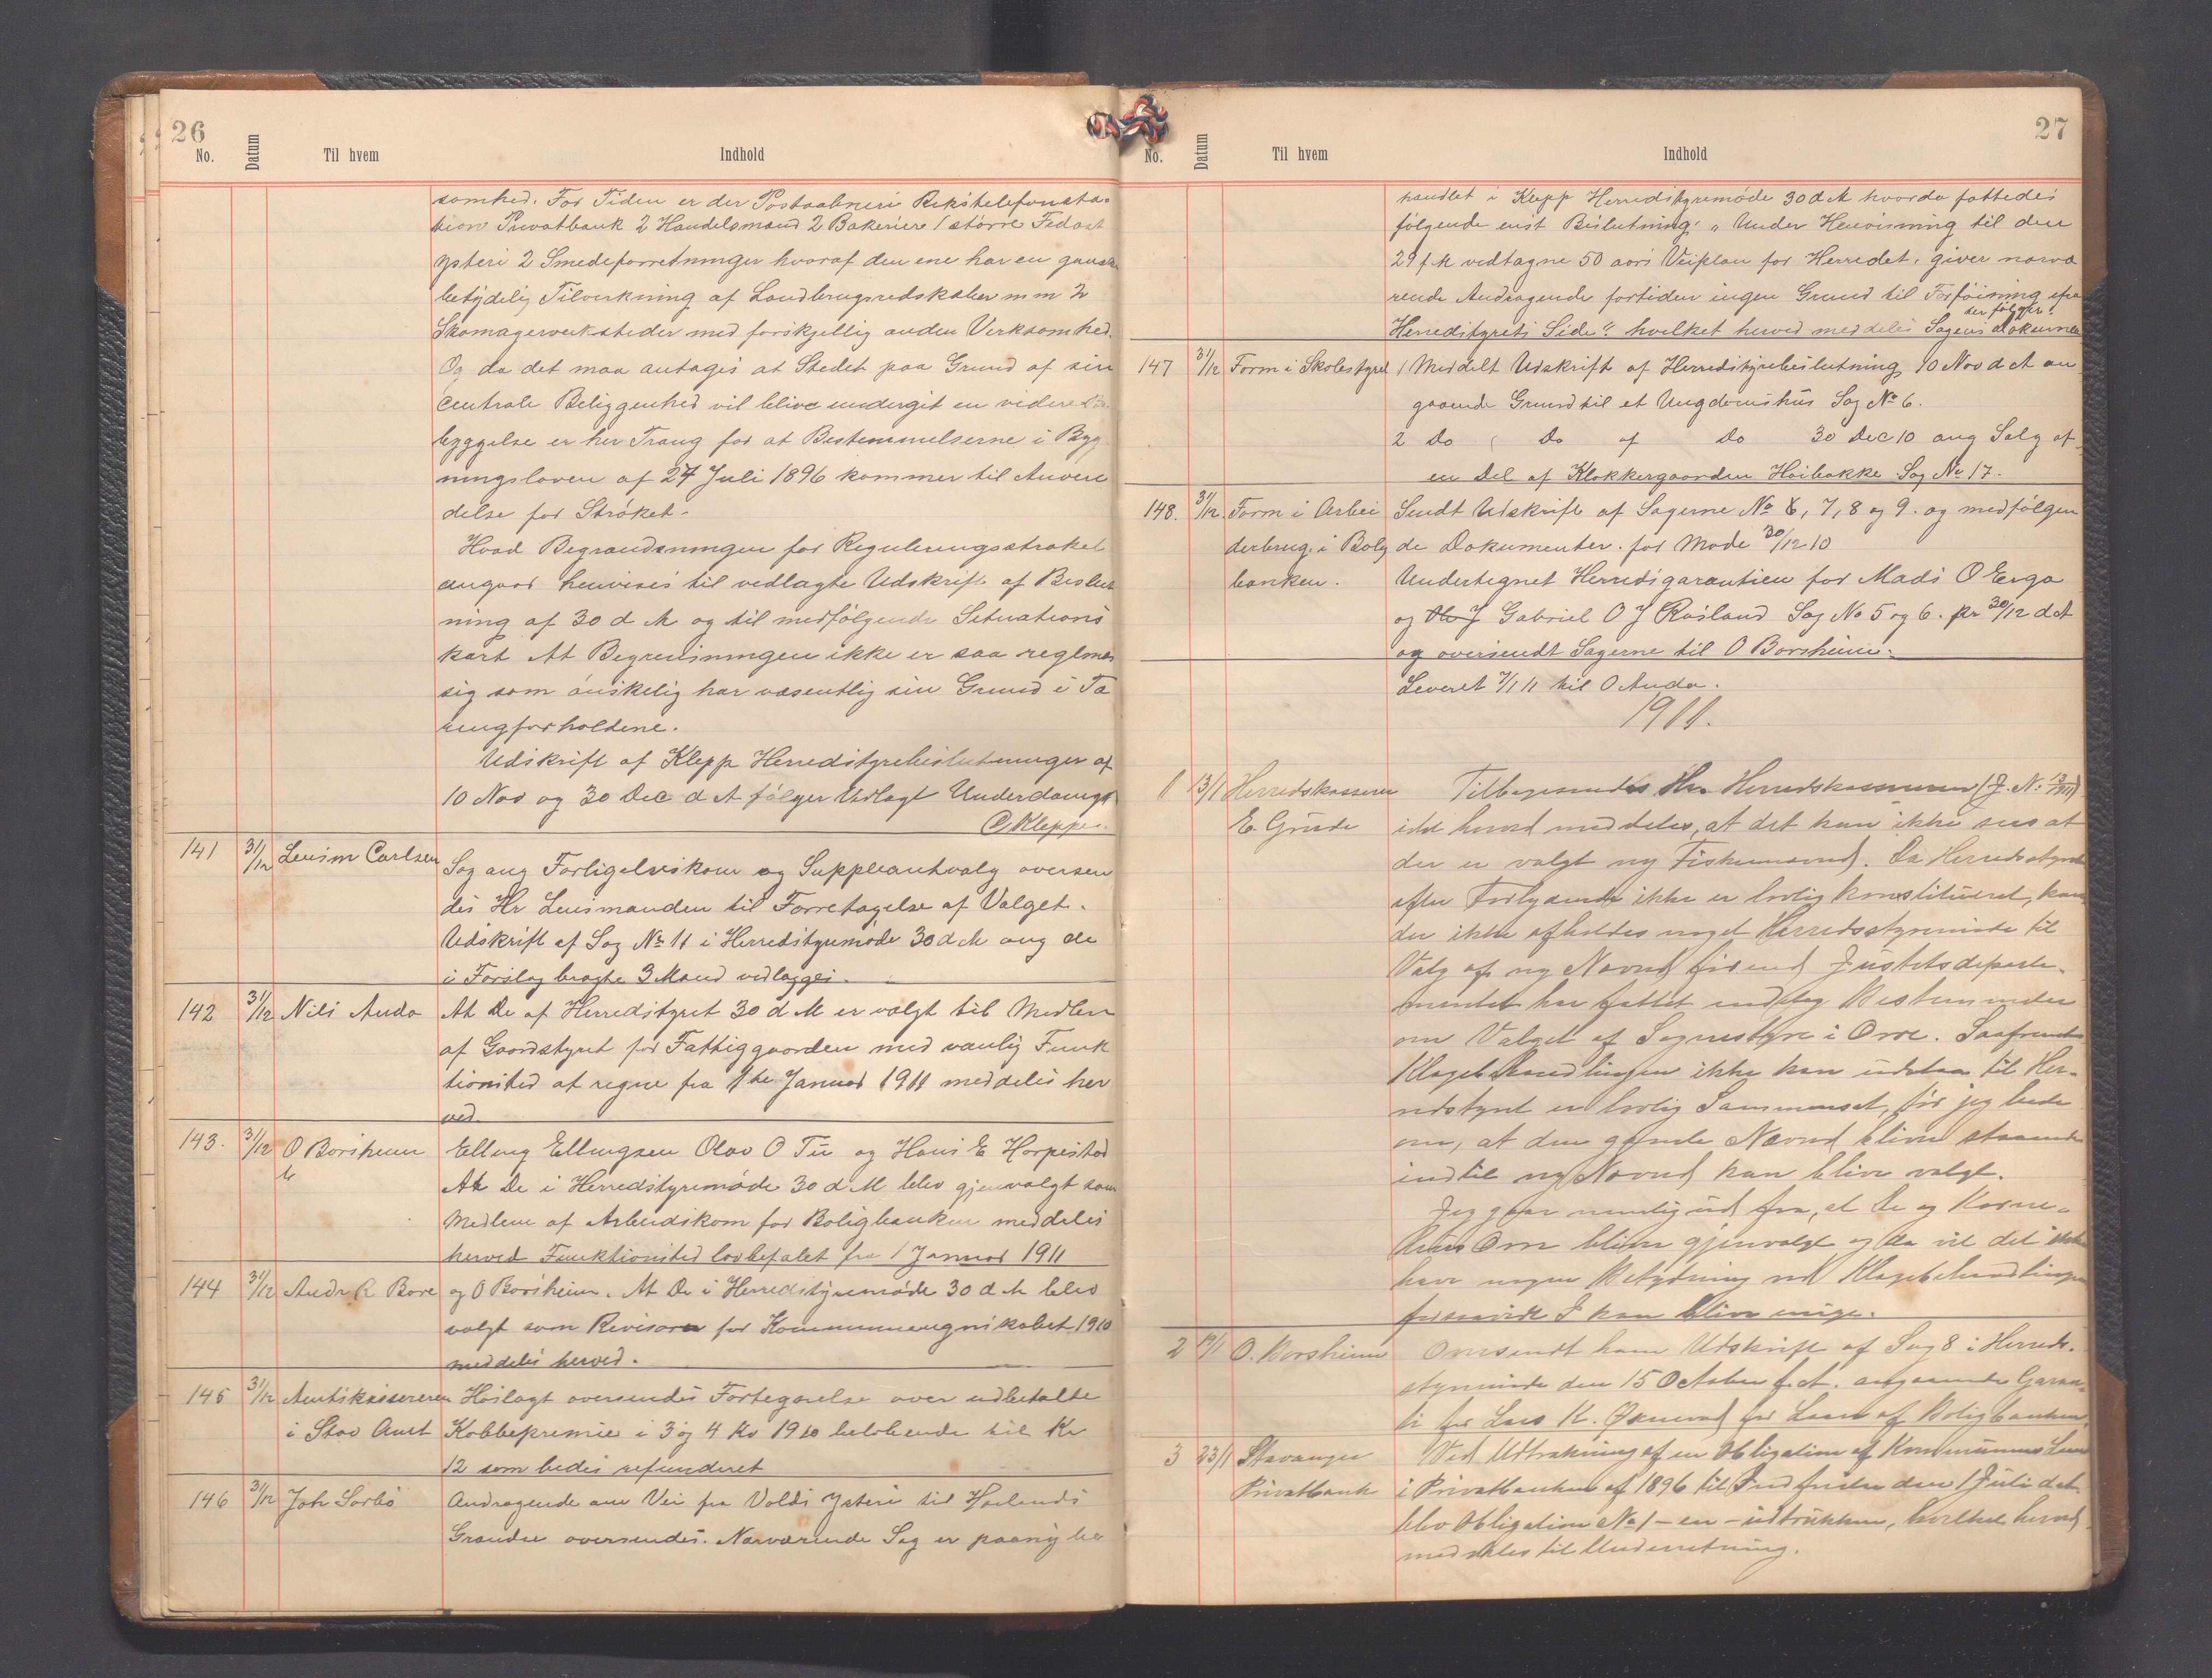 26
No. Datum Til hvem Indhold
somhed. For Tiden er der Postaabneri Rikstelefonsta-
tion Privatbank 2 Handelsmænd 2 Bakerier 1 større Fedost
ysteri 2 Smedeforretninger hvoraf den ene har en ganske
betydelig Tilvirkning af Landbrugsredskaber m m 2
Skomagerverksteder med forskjellig anden Verksomhed.
Og da det maa antages at Stedet paa Grund af sin
centrale Beliggenhed vil blive undergit en videre
byggelse er her Trang for at Bestemmelserne i Byg
ningsloven af 27 Juli 1896 kommer til Anven
delse for Strøket.
Hvad Begrændsningen for Reguleringsstrøket
angaar henvises til vedlagte Udskrift af Beslut
ning af 30 d M og til medfølgende Situations
kart At Begrensningen ikke er saa reglmæs
sig som ønskelig har væsentlig sin Grund i Tæ
ringforholdene.
Udskrift af Klepp Herredstyrebeslutninger af
10 Nov og 30 Dec d A følger Vedlagt Underdanigst
O Kleppe.
141 31/12 Lensm Carlsen Sag ang Forligelseskom og Suppleantvalg oversen
des Hr Lensmanden til Foretagelse af Valget.
Udskrift af Sag No 11 i Herredstyremøde 30 d M ang de
i Forslag bragte 3 Mænd vedlægges.
142 31/12 Nils Anda At De af Herredstyret 30 d M er valgt til Medlem
af Gaardstyret for Fattiggaarden med vanlig Funk
tionstid at regne fra 1ste Januar 1911 meddeles her
ved.
143. 31/12 O Borsheim Elling Ellingsen Olav O Tu og Hans E Horpestad
At De i Herredstyremøde 30 d M blev gjenvalgt som
Medlem af Arbeidskom for Boligbanken meddeles
herved Funktionstid lovbefalet fra 1 Januar 1911
144 31/12 Andr R Bore og O Borsheim. At De i Herredstyremøde 30 d M blev
valgt som Revisorer for Kommuneregnskabet 1910
meddeles herved.
145 31/12 Amtskassereren Høilagt oversendes Fortegnelse over udbetalte
i Stav Amt Kobbepremie i 3 og 4 Kv 1910 beløbende til Kr
12 som bedes refunderet
146 31/12 Joh Sørbø Andragende om Vei fra Volds Ysteri til Hælands
Grændse oversendes. Nærværende Sag er paany be
27
No. Datum Til hvem Indhold
handlet i Klepp Herredstyremøde 30 d M hvorda fattedes
følgende enst Beslutning: „Under Henvisning til den
29 f M vedtagne 50 aars Veiplan for Herredet, giver nærvæ
rende Andragende fortiden ingen Grund til Forføining fra
der følger.
Herredstyrets Side". hvilket herved meddeles Sagens Dokumen
147 31/12 Form i Skolestyret 1 Meddelt Udskrift af Herredstyrebeslutning 10 Nov d A an
gaaende Grund til et Ungdomshus Sag No 6.
2 Do ( Do af Do 30 Dec 10 ang Salg af
en Del af Klokkergaarden Haibakke Sag No 17.
148. 31/12 Form i Arbei Sendt Udskrift af Sagerne No 6, 7, 8 og 9. og medfølgen
derbrug. i Bolg de Dokumenter. for Møde 30/12 10
banken. Undertegnet Herredsgarantien for Mads O Erga
og Gabriel O J Rosland Sag No 5 og 6. pr 30/12 d A
og oversendt Sagerne til O Borsheim.
Leveret 7/1 11 til O Anda.
1911.
1 13/1 Herredskasserer Tilbagesendes Hr. Herredskassereren (J. N. 13/1911)
E. Grude idet herved meddeles, at det kan ikke sees at
der er valgt ny Fiskenævnd. Da Herredsstyret
efter Forlydende ikke er lovlig konstitueret, kan
der ikke afholdes noget Herredsstyremøde til
Valg af ny Nævnd førend Justitsdeparte-
mentet har fattet endelig Bestemmelse
om Valget af Sognestyre i Orre. Saafremt
Klagebehandlingen ikke kan udstaa til Her-
redstyret er lovlig Sammensat, før jeg bede
om, at den gamle Nævnd bliver staaende
indtil ny Nævnd kan blive valgt.
Jeg gaar nemlig ud fra, at De og
Orre bliver gjenvalgt og da vil det ikke
have nogen Betydning ved Klagebehandlingen
forsaavidt I kan blive enige.
2 19/1 O. Borsheim Oversendt ham Udskrift af Sag 8 i Herreds-
styremøde den 15 October f. A. angaaende Garan-
ti for Lars K. Øxnevad for Laan af Boligbanken.
3 23/1 Stavanger Ved Udtrækning af en Obligation af Kommunens Laan
Privatbank i Privatbanken af 1896 til Indfrielse den 1 Juli d A.
blev Obligation No 1 – en – udtrukken, hvilket herved
meddeles til Underretning.